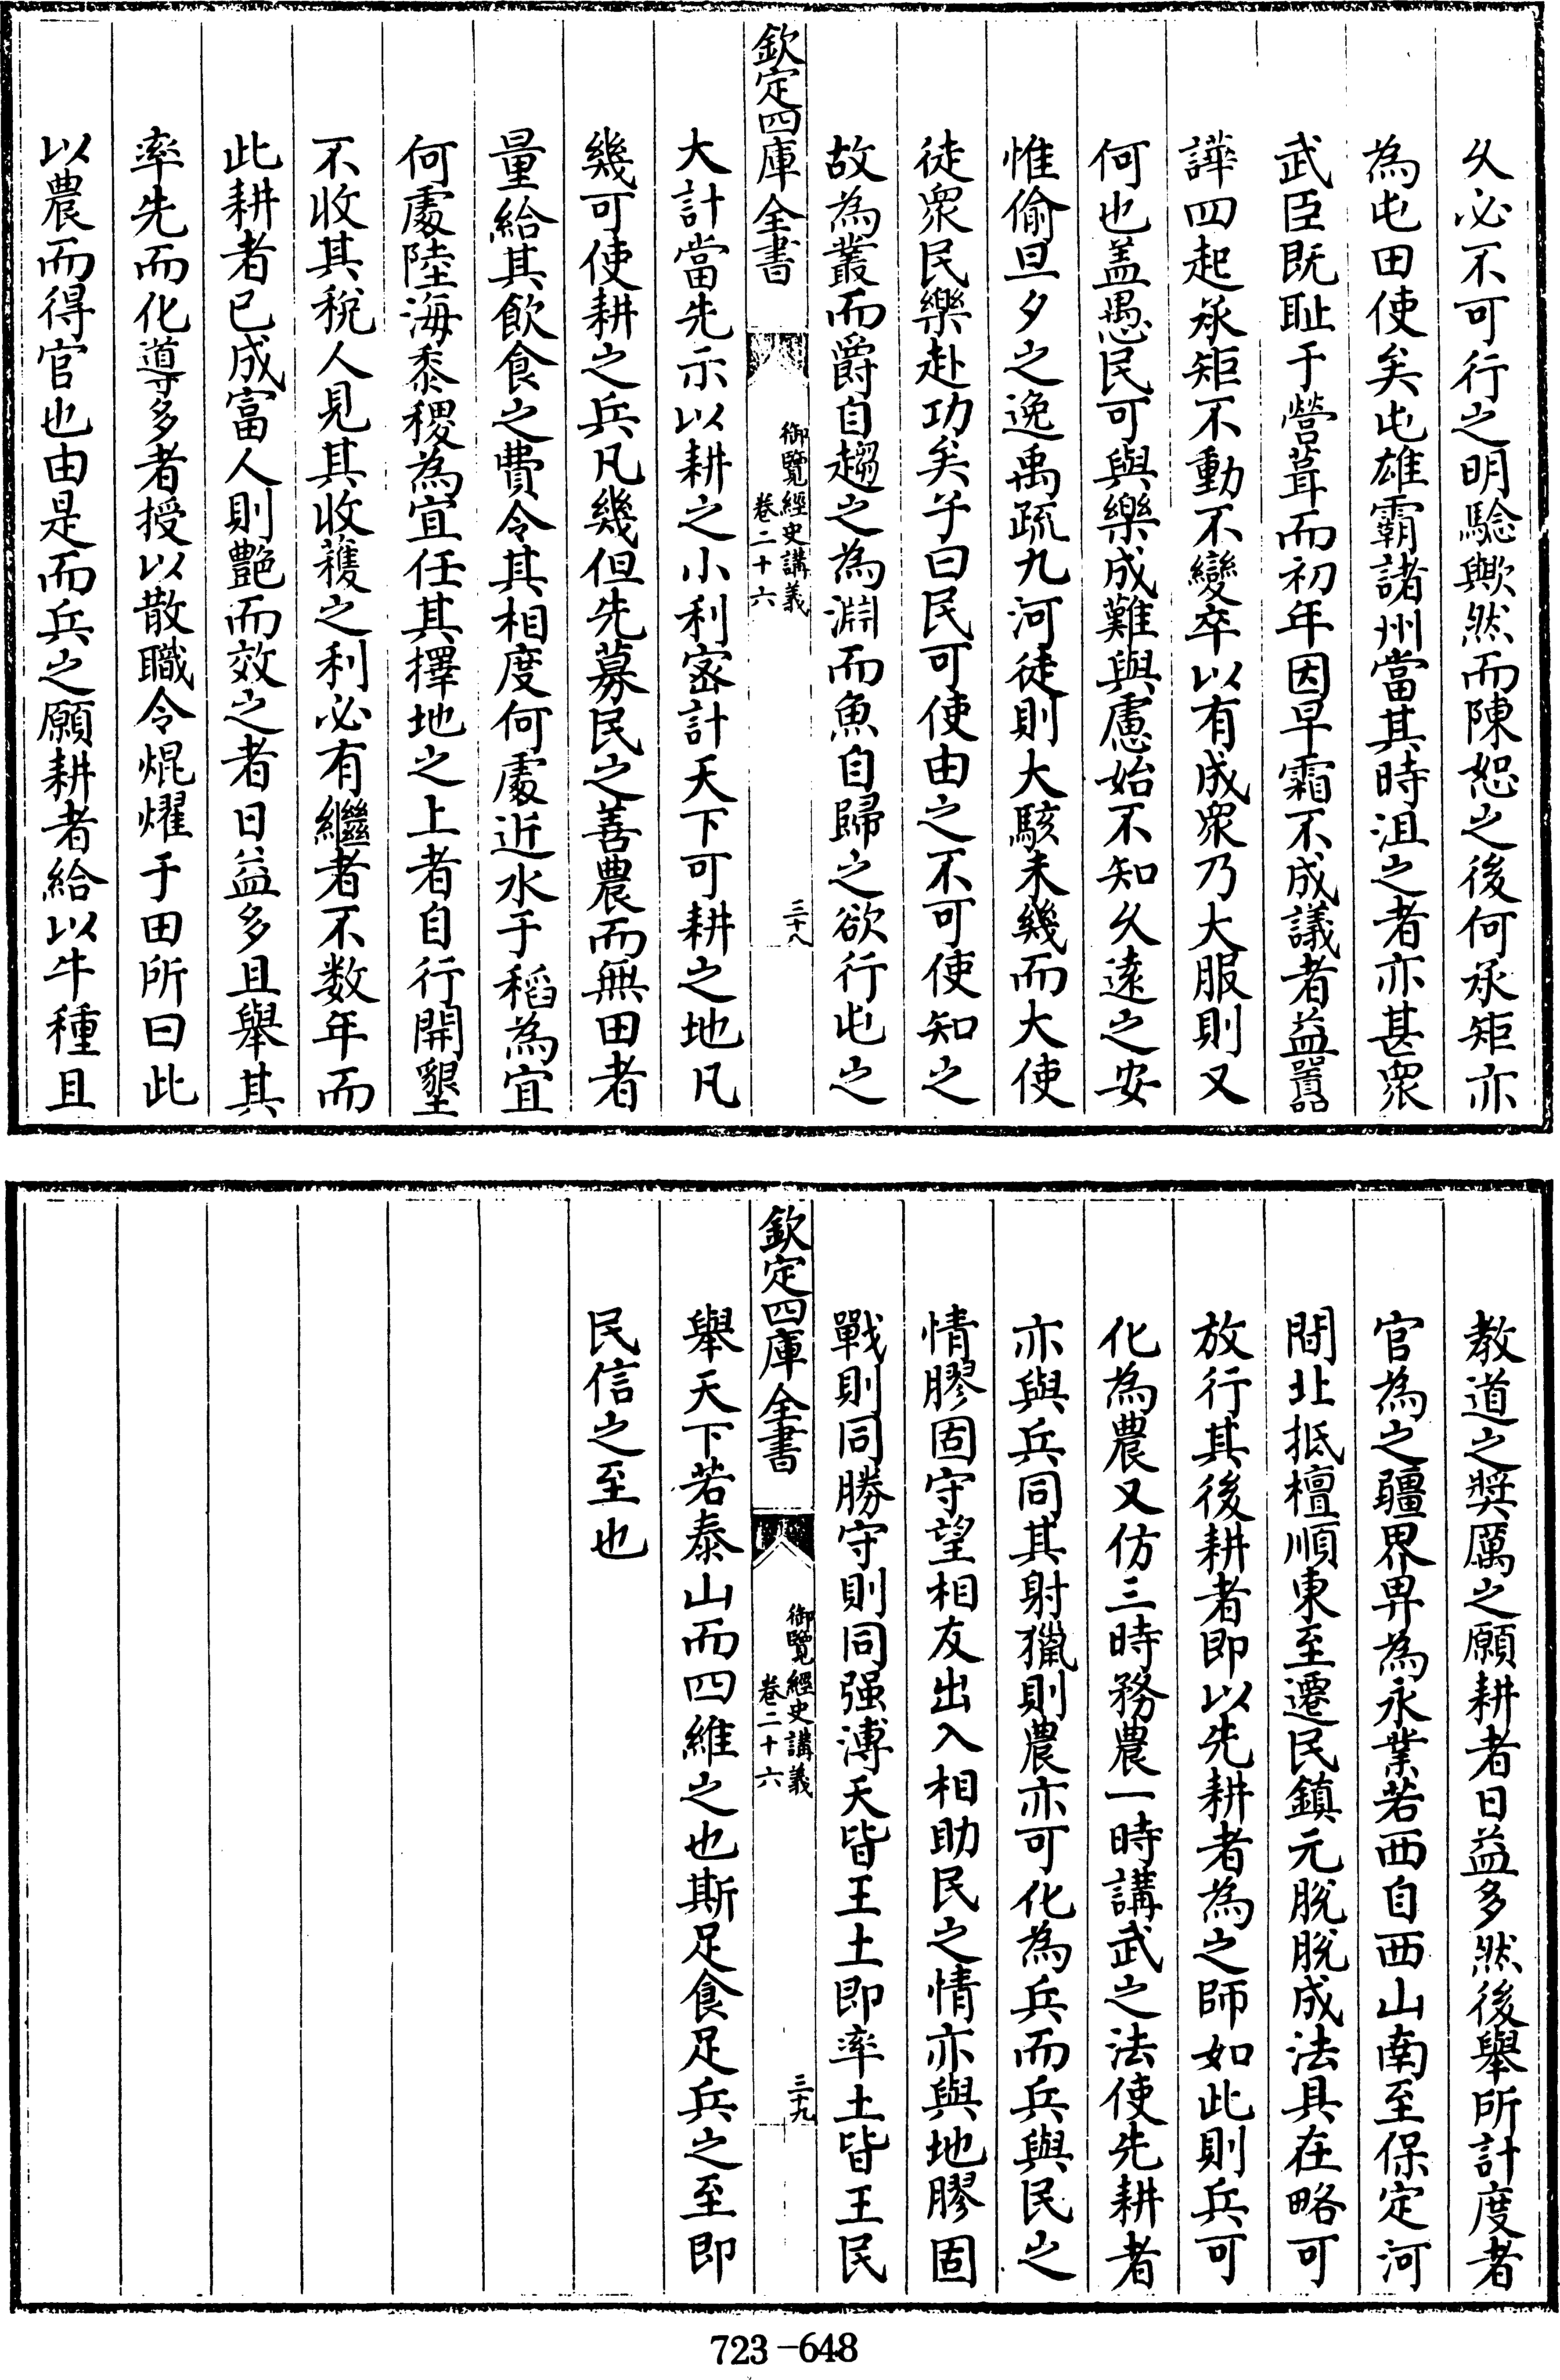 久必不可行之明驗歟然而陳恕之後何承矩亦
為屯田使矣屯雄霸諸州當其時沮之者亦甚衆
武臣既耻于營葺而初年因早霜不成議者益囂
譁四起承矩不動不變卒以有成衆乃大服則又
何也盖愚民可與樂成難與慮始不知久遠之安
惟偷旦夕之逸禹疏九河徒則大駭未幾而大使
徒衆民樂赴功矣子曰民可使由之不可使知之
故為叢而爵自趨之為淵而魚自歸之欲行屯之
欽定四庫全書
御覽經史講義
卷二十六
三十八
大計當先示以耕之小利宻計天下可耕之地凡
幾可使耕之兵凡幾但先募民之善農而無田者
量給其飲食之費令其相度何處近水于稻為宜
何處陸海黍稷為宜任其擇地之上者自行開墾
不收其稅人見其收穫之利必有繼者不数年而
此耕者已成富人則艷而效之者日益多且舉其
率先而化導多者授以散職令焜燿于田所曰此
以農而得官也由是而兵之願耕者給以牛種且
教道之奬厲之願耕者日益多然後舉所計度者
官為之疆界畀為永業若西自西山南至保定河
間北抵檀順東至遷民鎮元脫脫成法具在略可
放行其後耕者即以先耕者為之師如此則兵可
化為農又仿三時務農一時講武之法使先耕者
亦與兵同其射獵則農亦可化為兵而兵與民之
情膠固守望相友出入相助民之情亦與地膠固
戰則同勝守則同强溥天皆王土即率土皆王民
欽定四庫全書
御覽經史講義
卷二十六
三十九
舉天下若泰山而四維之也斯足食足兵之至即
民信之至也
723-648